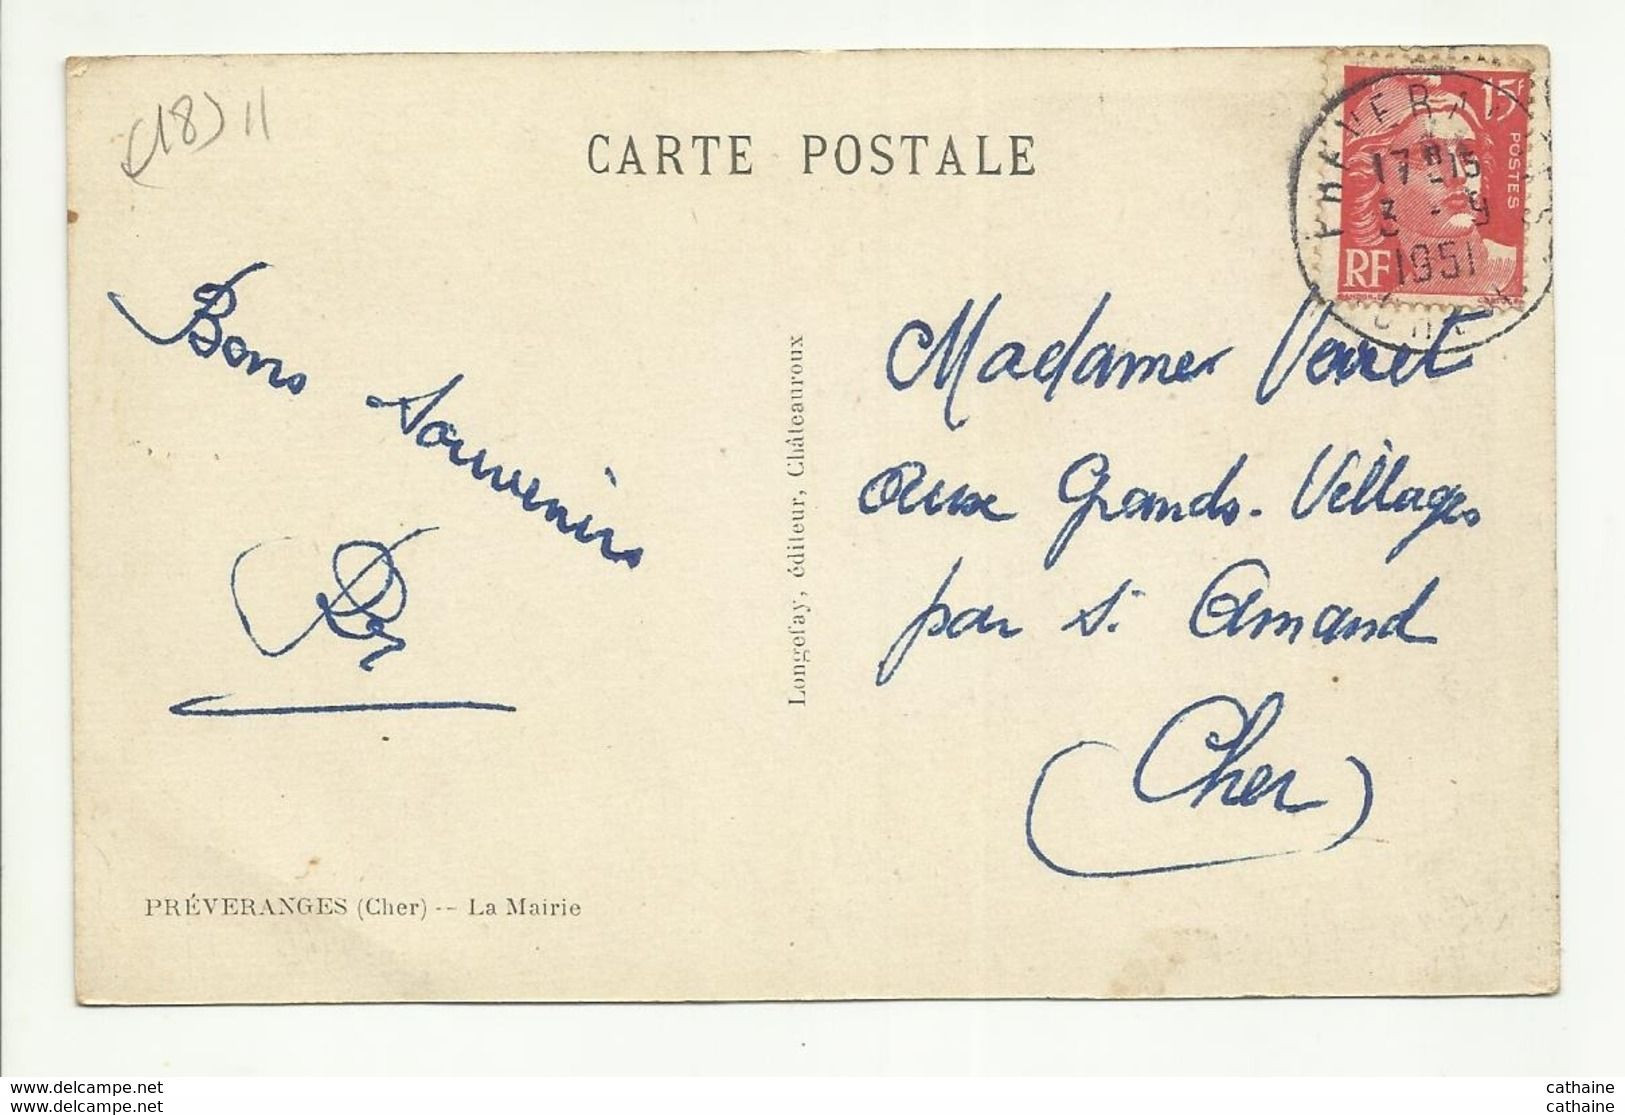 (18) 11
CARTE POSTALE
15F
POSTES
RF
PREVERANGES
17H15
3 - 9
1951
CHER
Bons souvenirs
Longefay, éditeur, Châteauroux
Madame Verret
Aux Grands-Villages
par St Amand
(Cher)
PRÉVERANGES (Cher) -- La Mairie
www.delcampe.net
www.delcampe.net
cathaine
cathaine